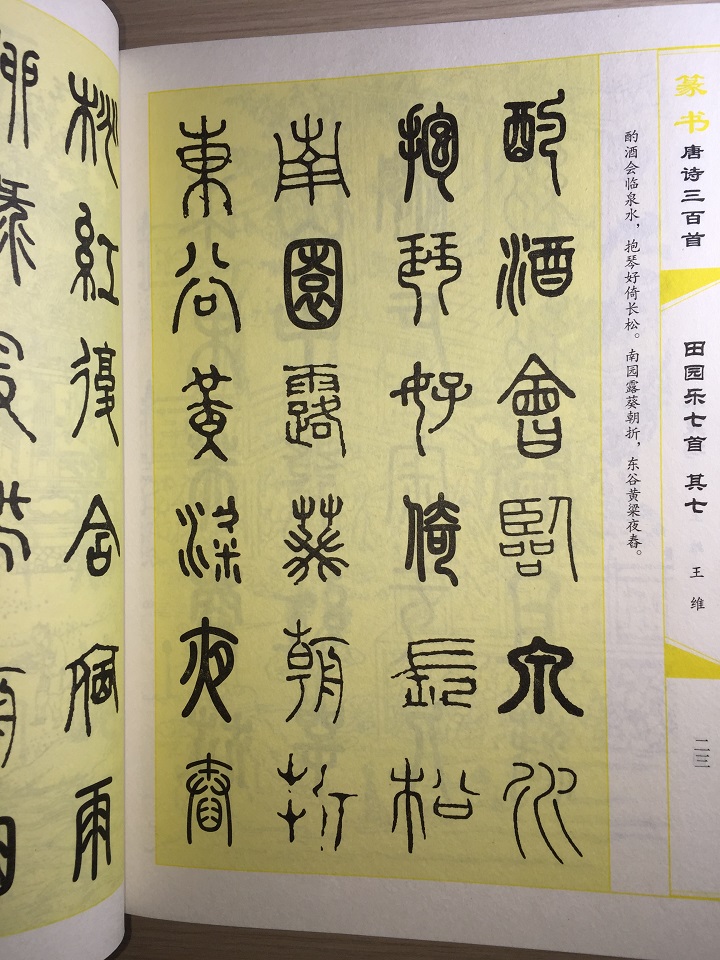 篆书
唐诗三百首
田园乐七首 其七
王维
二三
酌酒会临泉水，抱琴好倚长松。南园露葵朝折，东谷黄粱夜舂。
酌酒會臨泉水
抱琴好倚長松
南園露葵朝折
東谷黃梁夜舂
桃紅復含宿雨